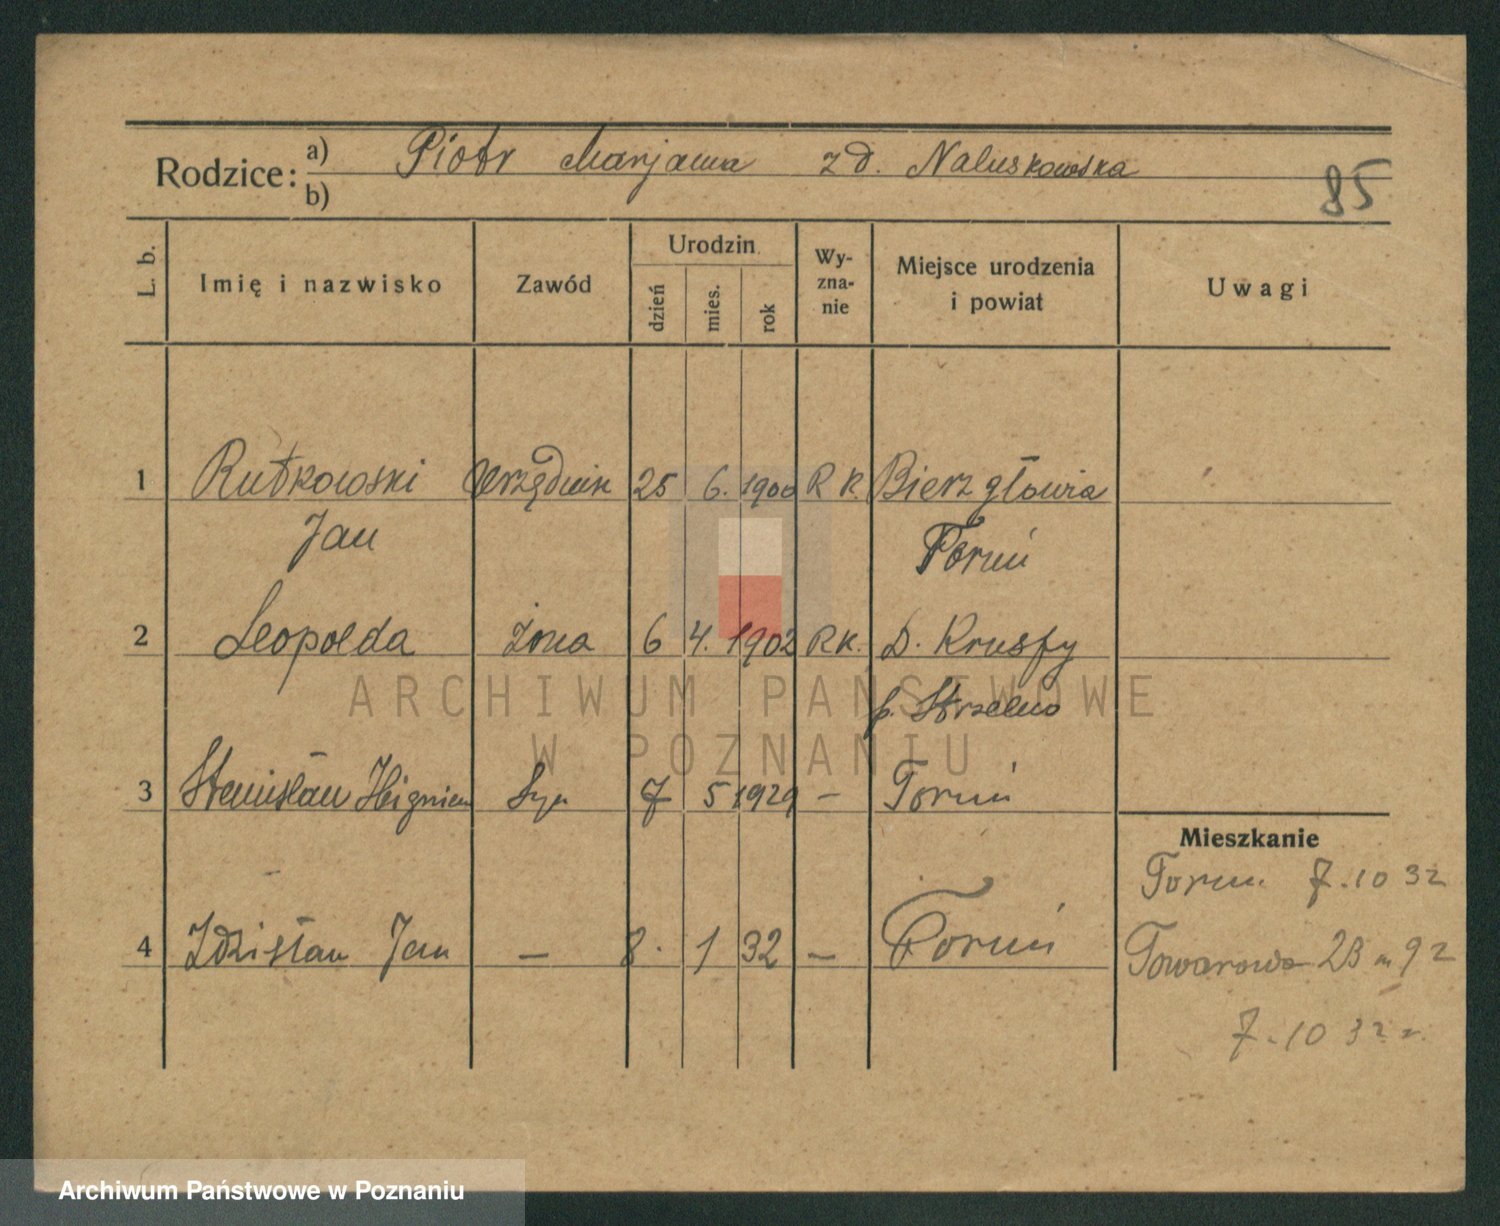 Rodzice: a) Piotr Marjanna z d. Naluskowska
b)
85
L. b. Imię i nazwisko Zawód Urodzin. dzień mies. rok Wyznanie Miejsce urodzenia i powiat Uwagi
1 Rutkowski Urzędnik 25 6. 1900 R K. Bierzgłowia
Jan Toruń
2 Leopolda żona 6 4. 1902 RK. D. Kruszy
p. Strzelno
3 Stanisław Zbigniew Syn 7 5 1929 – Toruń
Mieszkanie
Toruń 7.10 32
4 Zdzisław Jan – 8. 1 32 – Toruń
Towarowa 23 m 92
7.10 32 r.
ARCHIWUM PAŃSTWOWE
W POZNANIU
Archiwum Państwowe w Poznaniu